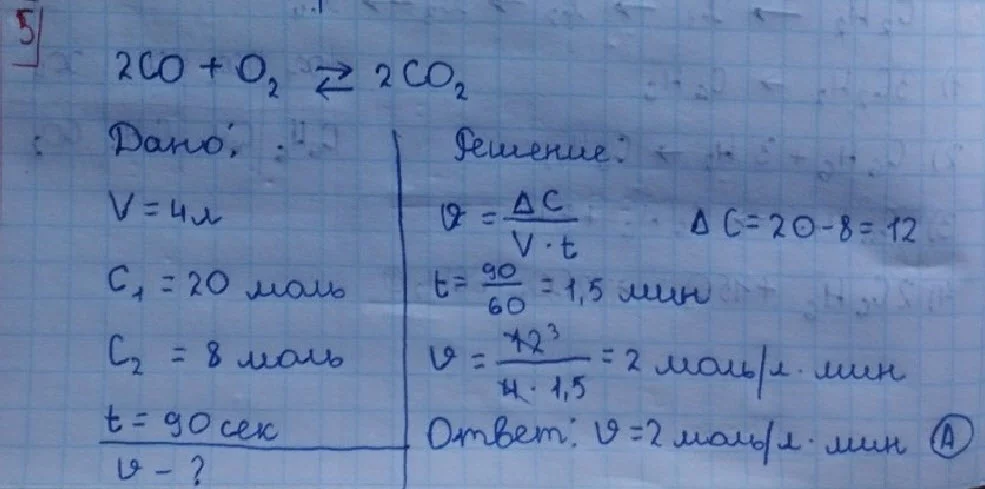 5
2CO + O₂ ⇄ 2CO₂
Дано:
V = 4л
C₁ = 20 моль
C₂ = 8 моль
t = 90 сек
υ - ?
Решение:
υ = ΔC / V · t ΔC = 20 - 8 = 12
t = 90/60 = 1,5 мин
υ = 12³ / 4 · 1,5 = 2 моль/л · мин
Ответ: υ = 2 моль/л · мин (A)